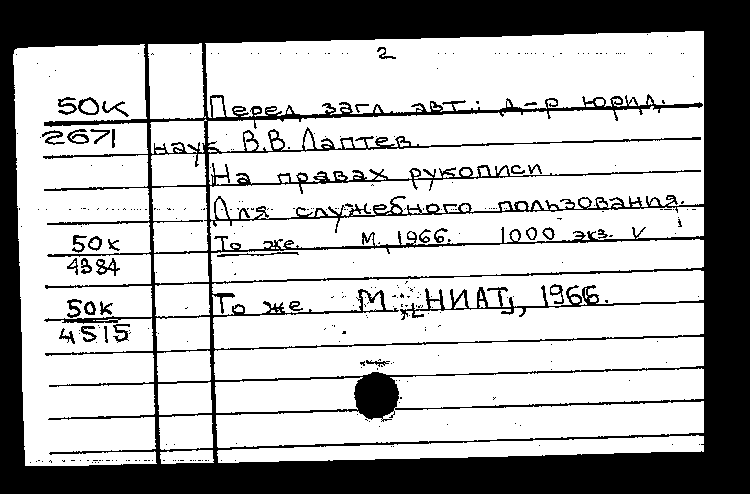 2
50к Перед загл. авт.: д-р юрид.
2671 наук В.В. Лаптев.
На правах рукописи.
Для служебного пользования.
50к То же. М., 1966. 1000 экз. V
4384
50к То же. М., НИАТ, 1966.
4515